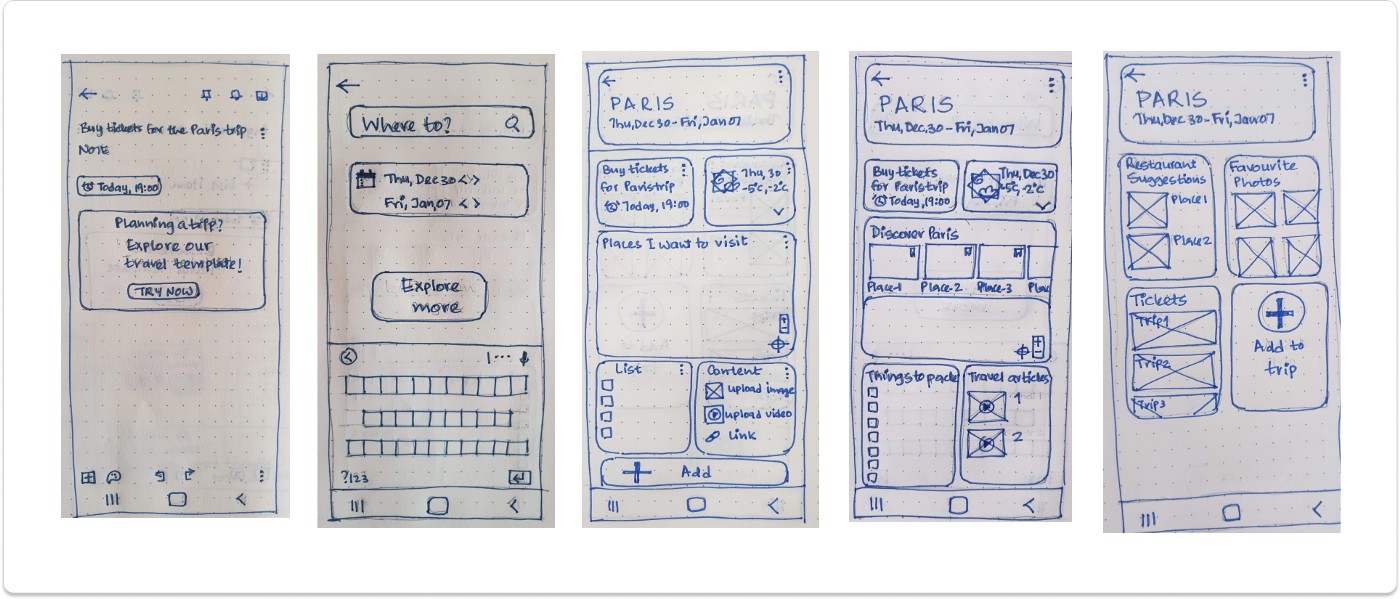 Buy tickets for the Paris trip
NOTE
Today, 19:00
Planning a trip?
Explore our
travel template!
TRY NOW
Where to?
Thu, Dec 30 < >
Fri, Jan, 07 < >
Explore
more
?123
PARIS
Thu, Dec 30 - Fri, Jan 07
Buy tickets
for Paris trip
Today, 19:00
Thu, 30
-5°c, -2°c
Places I want to visit
List
Content
upload image
upload video
Link
Add
PARIS
Thu, Dec, 30 - Fri, Jan 07
Buy tickets
for Paris trip
Today, 19:00
Thu, Dec 30
-5°c, -2°c
Discover Paris
Place-1 Place-2 Place-3 Plac
Things to pack
Travel articles
1
2
PARIS
Thu, Dec 30 - Fri, Jan 07
Restaurant
Suggestions
Place 1
Place 2
Favourite
Photos
Tickets
Trip1
Trip2
Trip3
Add to
trip